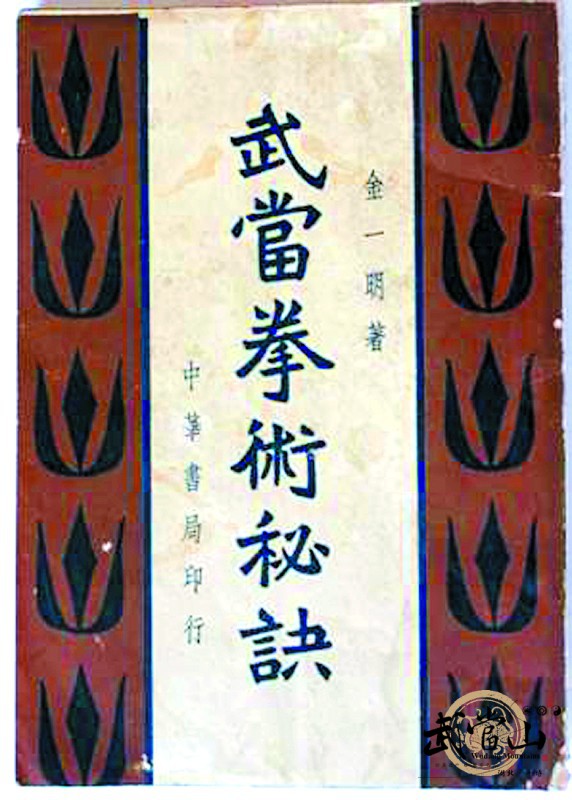 金一明著
武當拳術秘訣
中華書局印行
武當山
Wudang Mountains